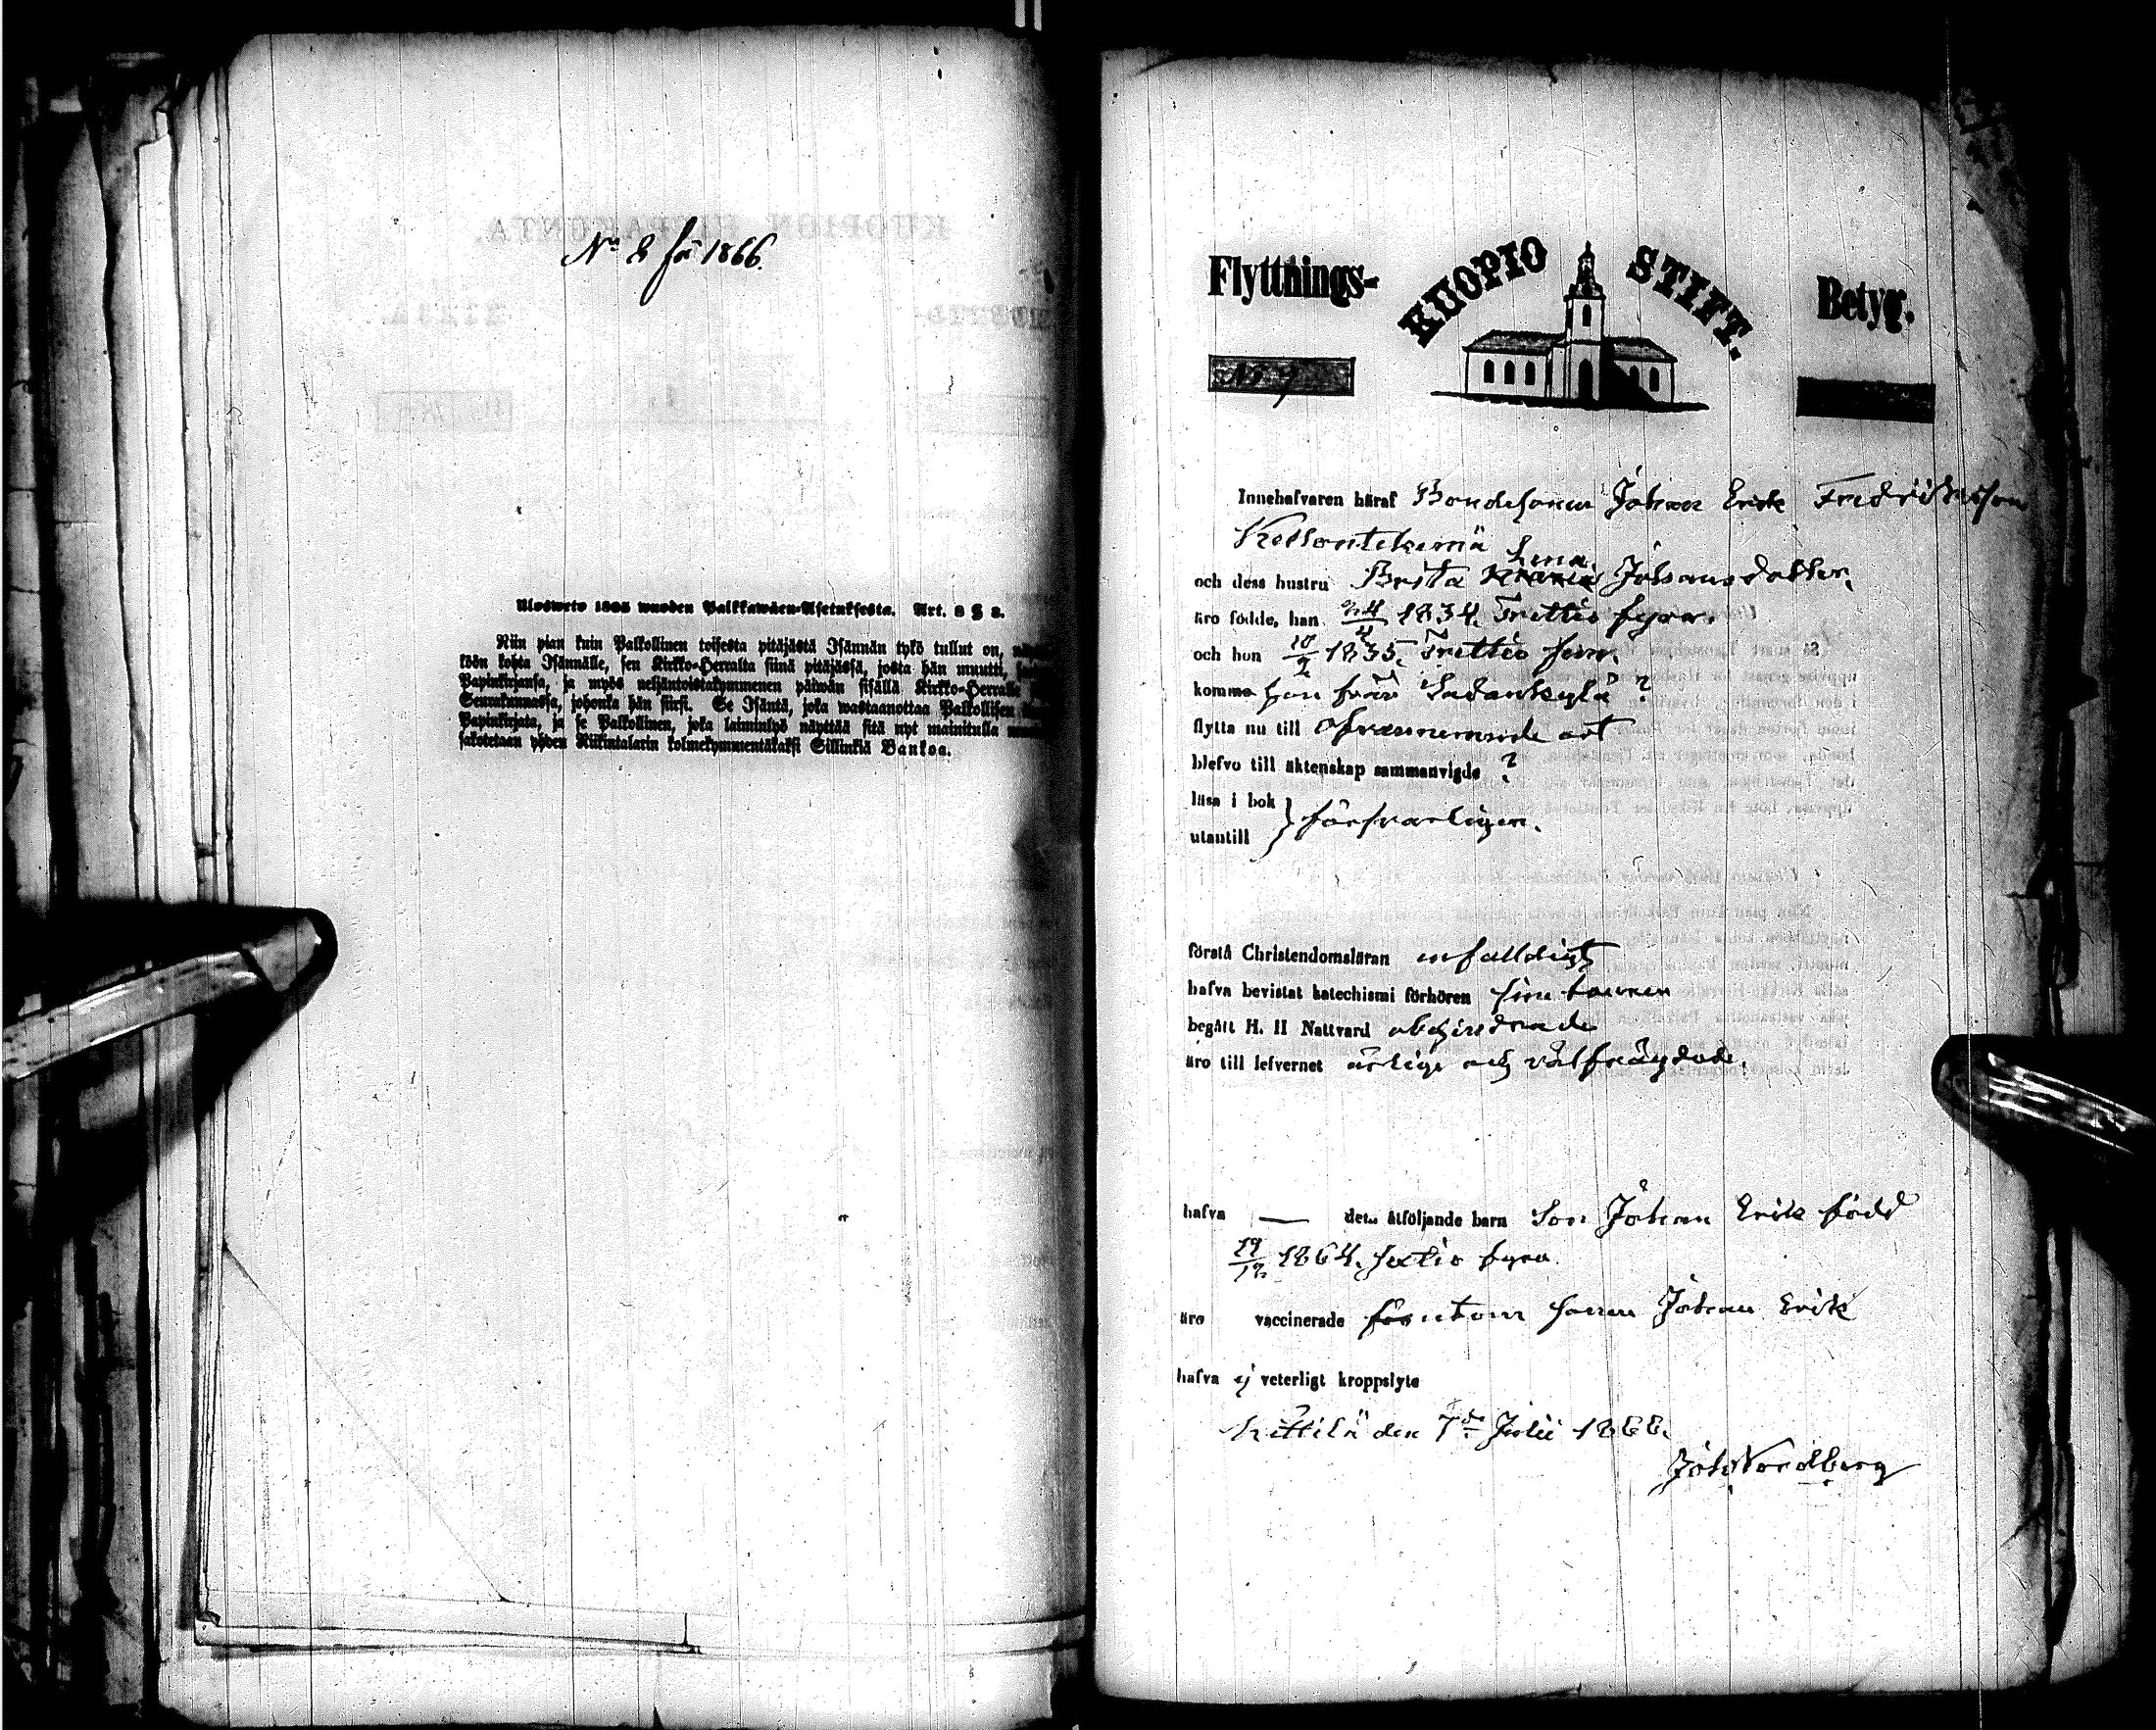 No 8 för 1866.
Uloswето 1865 wuoden Palkkawäen-Asetuksesta. Art. 8 § 8.
Niin pian kuin Palkollinen toisesta pitäjästä Isännän tykö tullut on,
köön kohta Isännälle, sen Kirkko-Herralta siinä pitäjässä, josta hän muutti,
Papinkirjansa, ja myös neljäntoistakymmenen päiwän sisällä Kirkko-Herralle
Seurakunnassa, johonka hän siirsi. Se Isäntä, joka wastaanottaa Palkollisen
Papinkirjata, ja se Palkollinen, joka laiminlyö näyttää sitä nyt mainitulla
sakotetaan yhden Riikintalarin kolmekymmentäkaksi Sillinkiä Bankoa.
Flyttnings- KUOPIO STIFT. Betyg.
No 9
Innehafvaren häraf Bondesonen Johan Erik Fredriksson
och dess hustru Brita Lena Johansdotter,
äro födde, han 24/4 1834. Trettio fyra.
och hon 10/2 1835. Trettio fem.
komme hon från Sodankylä ?
flytta nu till ofvannämnde ort
blefvo till äktenskap sammanvigde ?
läsa i bok
utantill } försvarligen.
förstå Christendomsläran enfalldigt
hafva bevistat katechismi förhören
begått H. H Nattvard obehindrade
äro till lefvernet ärlige och välfrägdade.
hafva — dem åtföljande barn Son Johan Erik född
19/12 1864. sextio fyra.
äro vaccinerade förutom sonen Johan Erik
hafva ej veterligt kroppslyte
Kittilä den 7de Julii 1866.
Joh. Nordberg